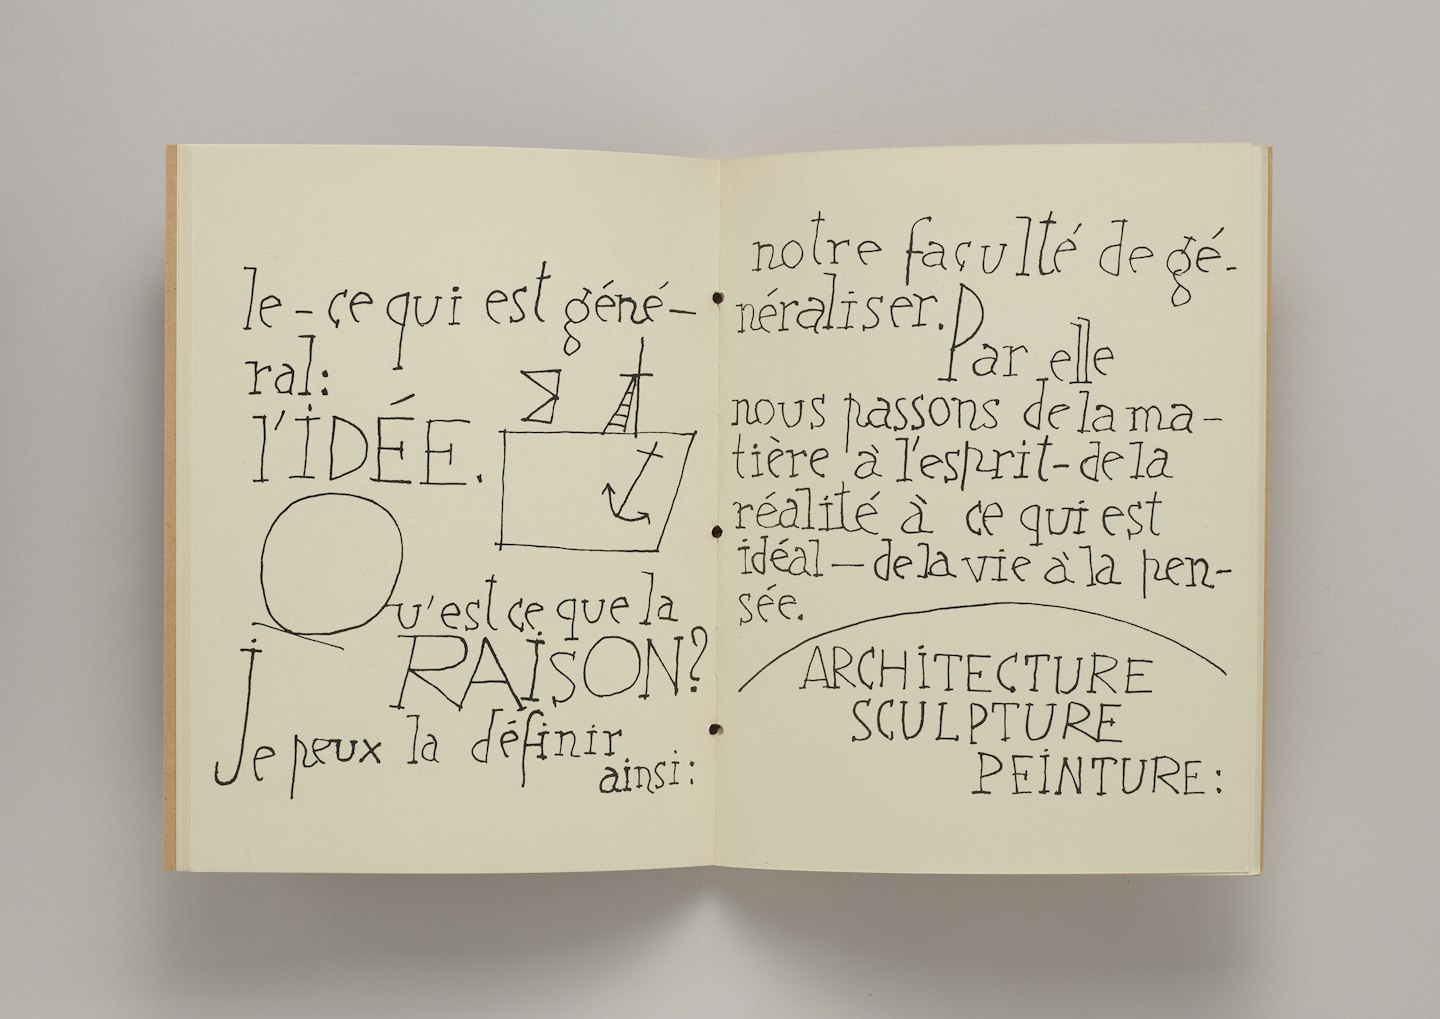 le – ce qui est géné–
ral:
l'iDÉE.
Qu'est ce que la
RAiSON?
je peux la définir
ainsi:
notre façulté de gé-
néraliser. Par elle
nous passons de la ma–
tière à l'esprit – de la
réalité à ce qui est
idéal – de la vie à la pen–
sée.
ARCHiTECTURE
SCULPTURE
PEiNTURE: